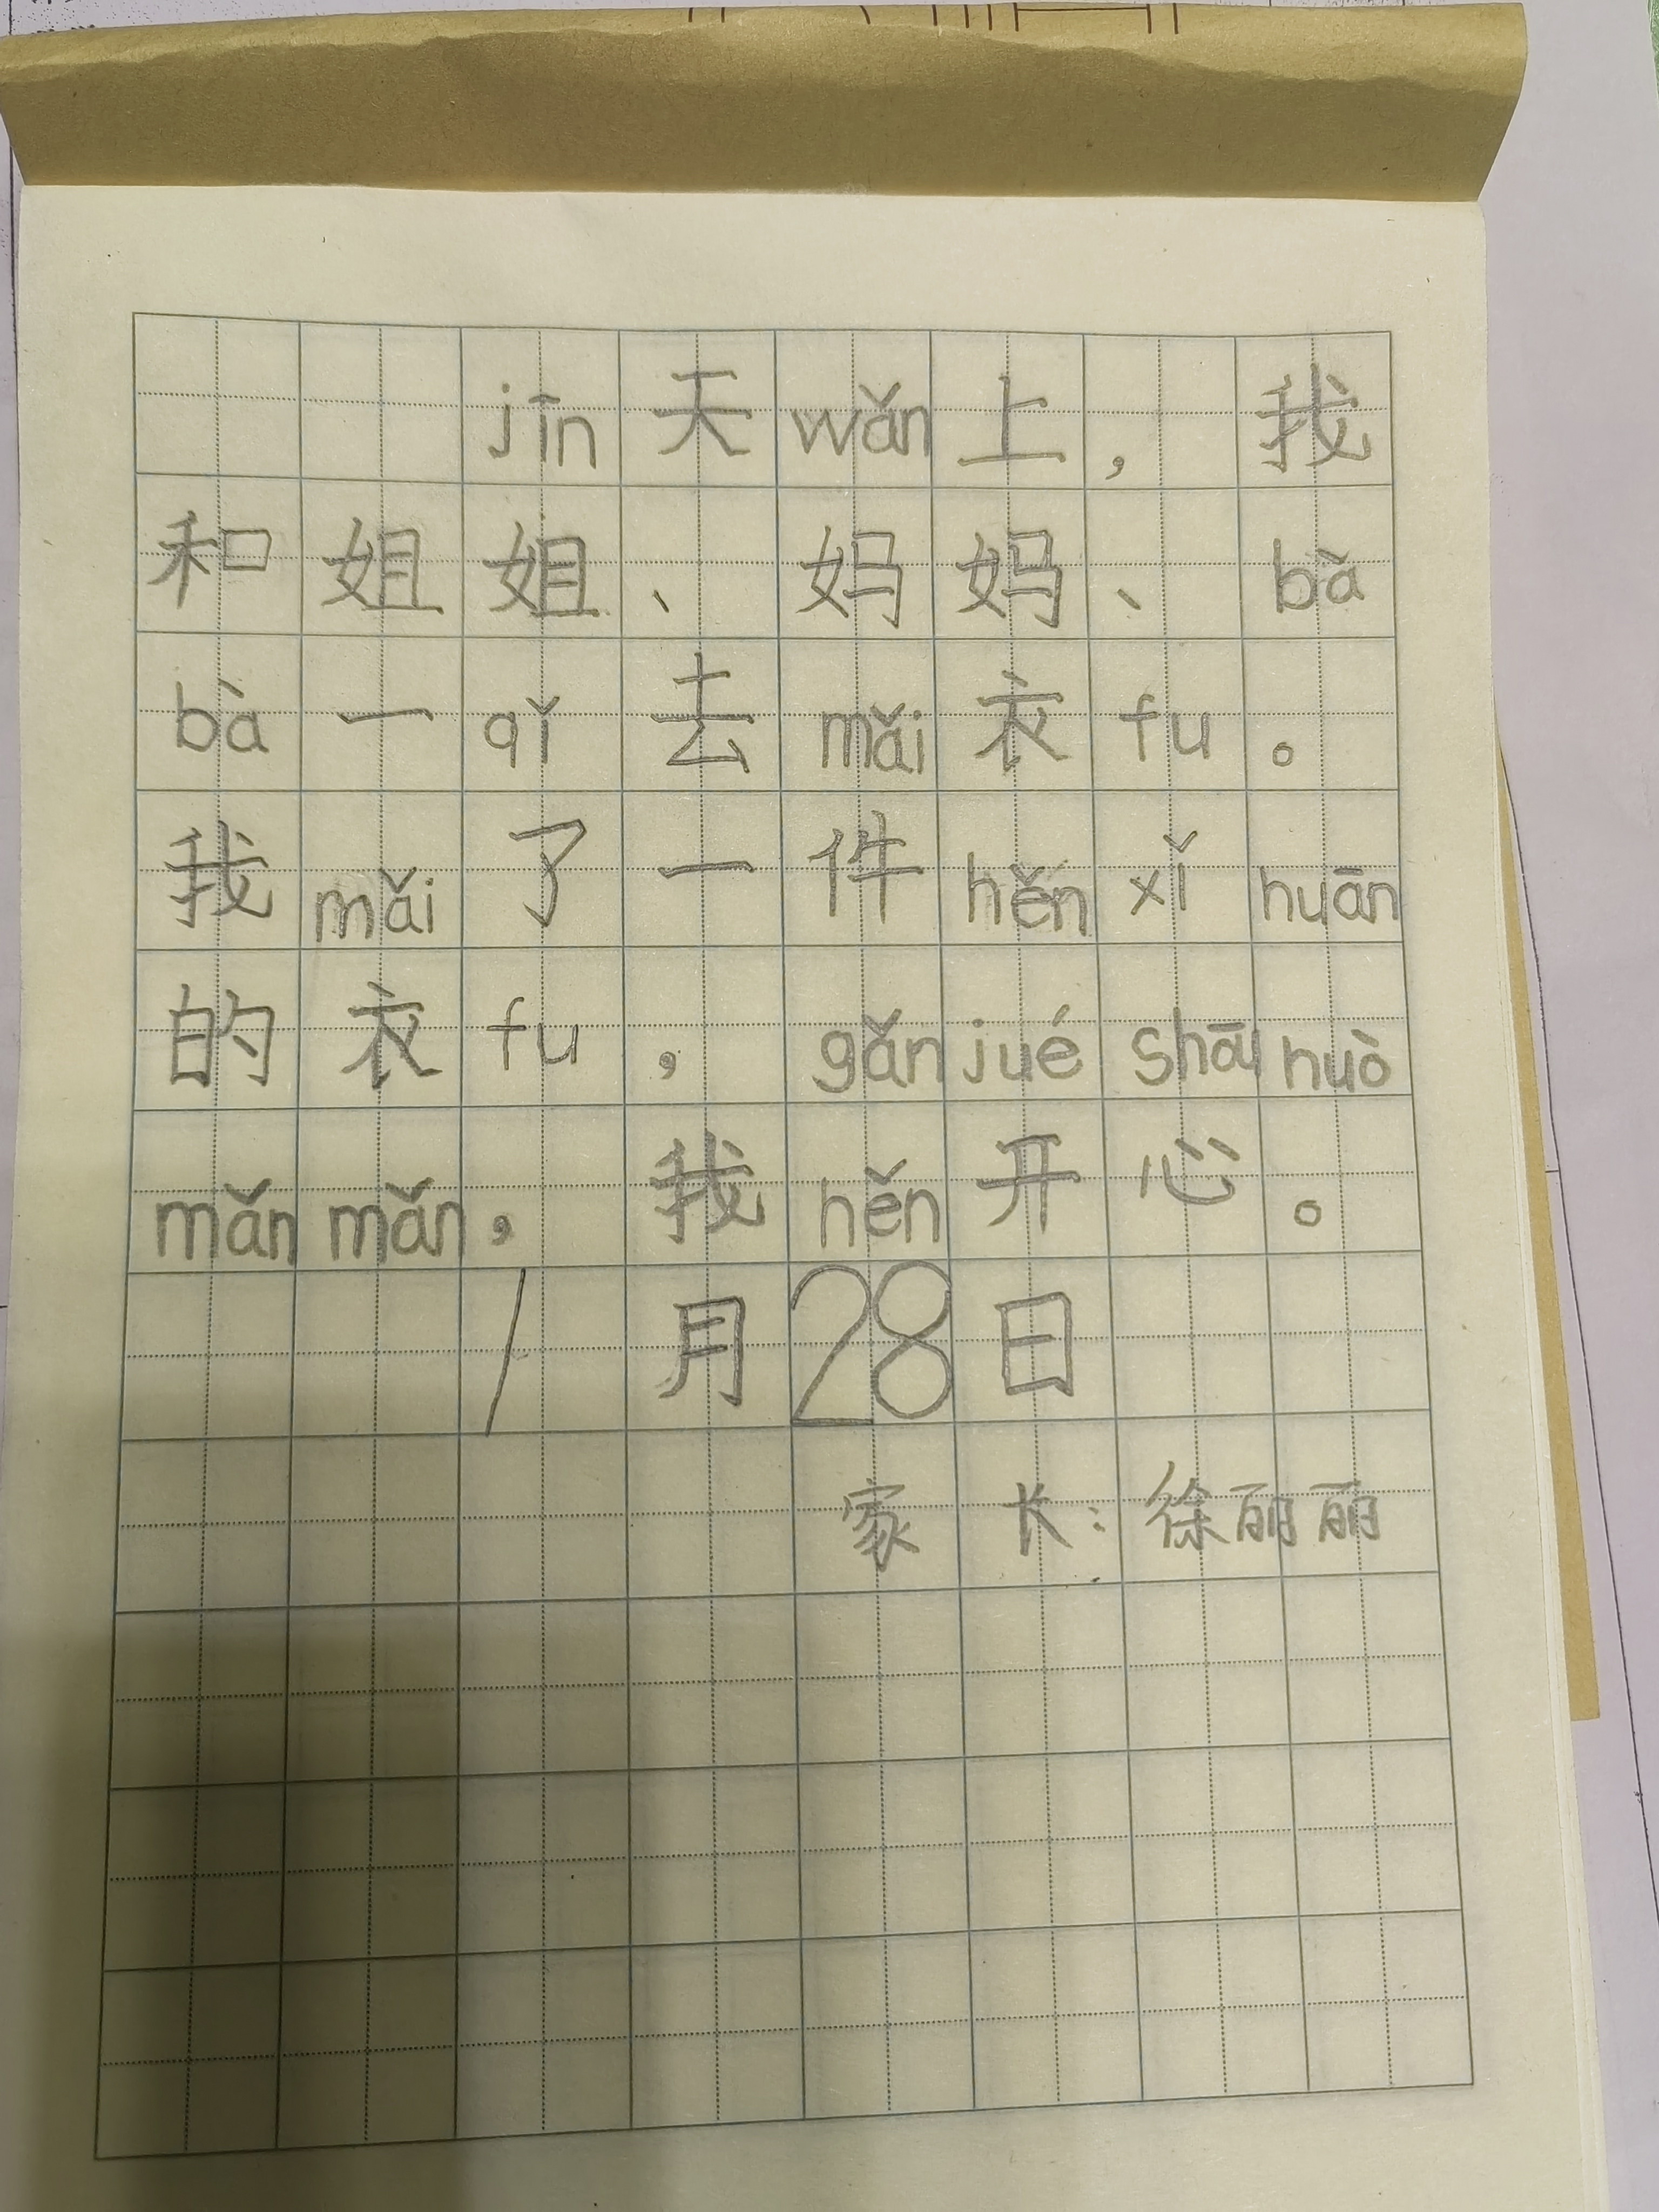 jīn天wǎn上，我
和姐姐、妈妈、bà
bà一qǐ去mǎi衣fu。
我mǎi了一件hěn xǐ huān
的衣fu，gǎn jué shōu huò
mǎn mǎn，我hěn开心。
1月28日
家长：徐丽丽